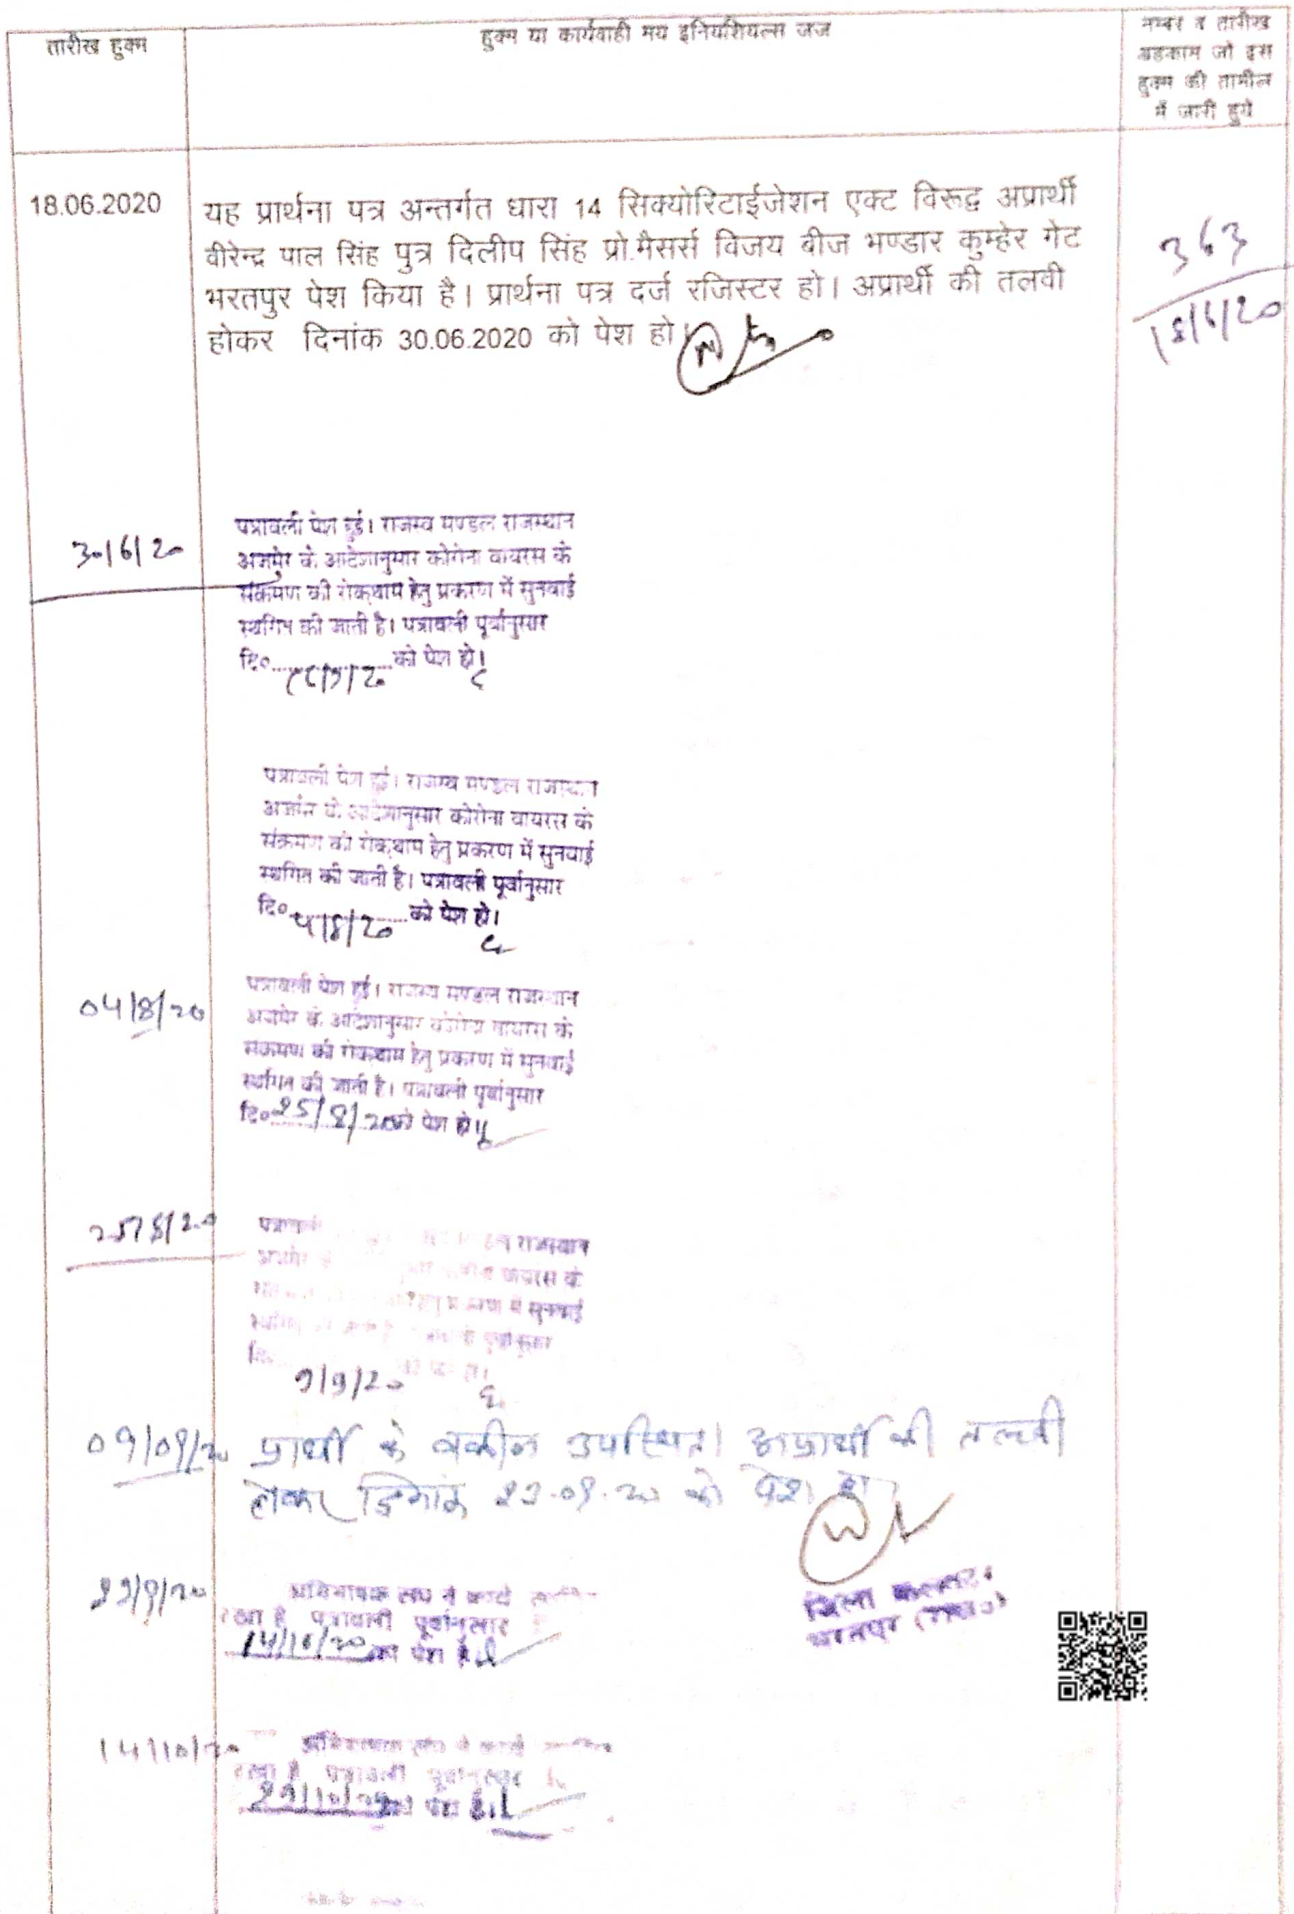 तारीख हुक्म
हुक्म या कार्यवाही मय इनिशियल्स जज
नम्बर व तारीख
अहकाम जो इस
हुक्म की तामील
में जारी हुये
18.06.2020
यह प्रार्थना पत्र अन्तर्गत धारा 14 सिक्योरिटाईजेशन एक्ट विरूद्ध अप्रार्थी
वीरेन्द्र पाल सिंह पुत्र दिलीप सिंह प्रो.मैसर्स विजय बीज भण्डार कुम्हेर गेट
भरतपुर पेश किया है। प्रार्थना पत्र दर्ज रजिस्टर हो। अप्रार्थी की तलवी
होकर दिनांक 30.06.2020 को पेश हो।
363
18/6/20
30/6/20
पत्रावली पेश हुई। राजस्व मण्डल राजस्थान
अजमेर के आदेशानुसार कोरोना वायरस के
संक्रमण की रोकथाम हेतु प्रकरण में सुनवाई
स्थगित की जाती है। पत्रावली पूर्वानुसार
दि० को पेश हो।
पत्रावली पेश हुई। राजस्व मण्डल राजस्थान
अजमेर के आदेशानुसार कोरोना वायरस के
संक्रमण की रोकथाम हेतु प्रकरण में सुनवाई
स्थगित की जाती है। पत्रावली पूर्वानुसार
दि० 4/8/20 को पेश हो।
04/8/20
पत्रावली पेश हुई। राजस्व मण्डल राजस्थान
अजमेर के आदेशानुसार कोरोना वायरस के
संक्रमण की रोकथाम हेतु प्रकरण में सुनवाई
स्थगित की जाती है। पत्रावली पूर्वानुसार
दि० 25/8/20 को पेश हो।
25/8/20
राजस्थान
अजमेर वायरस के
में सुनवाई
9/9/20
09/09/20 प्रार्थी के वकील उपस्थित। अप्रार्थी की तलवी
होकर दिनांक 22.09.20 को पेश हो
जिला कलक्टर
भरतपुर (राज0)
22/9/20
अभिभाषक संघ ने कार्य
रखा है पत्रावली पूर्वानुसार
14/10/20 को पेश हो
14/10/20
अभिभाषक संघ ने कार्य
रखा है पत्रावली पूर्वानुसार
को पेश हो